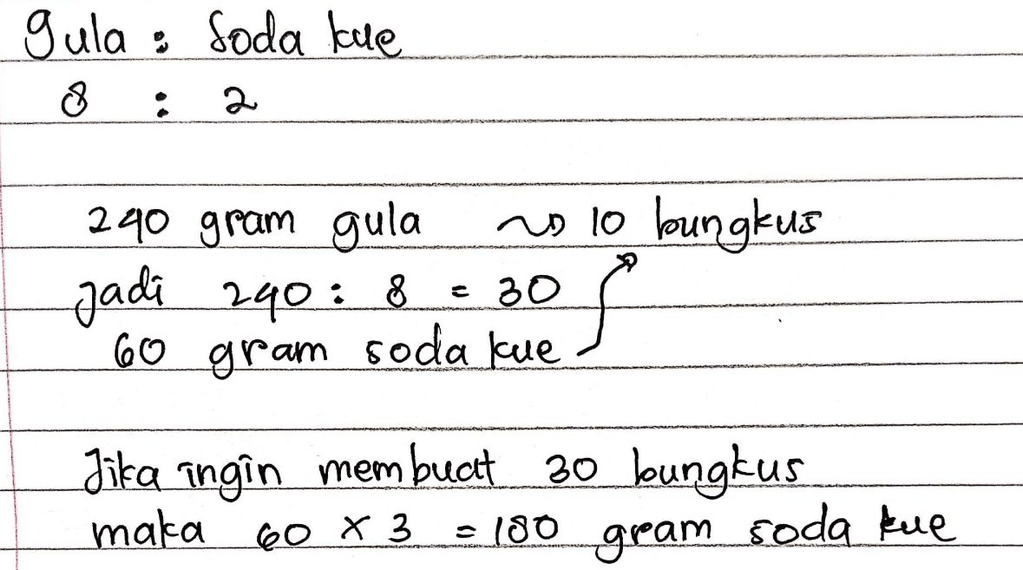 gula : Soda kue
8 : 2
240 gram gula ~> 10 bungkus
Jadi 240 : 8 = 30
60 gram soda kue
Jika ingin membuat 30 bungkus
maka 60 x 3 = 180 gram soda kue